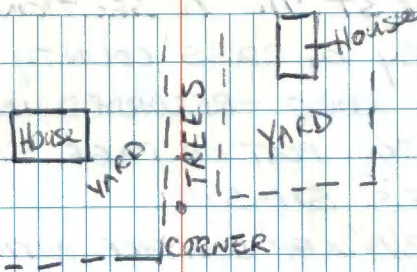 House
House
YARD
TREES
YARD
CORNER